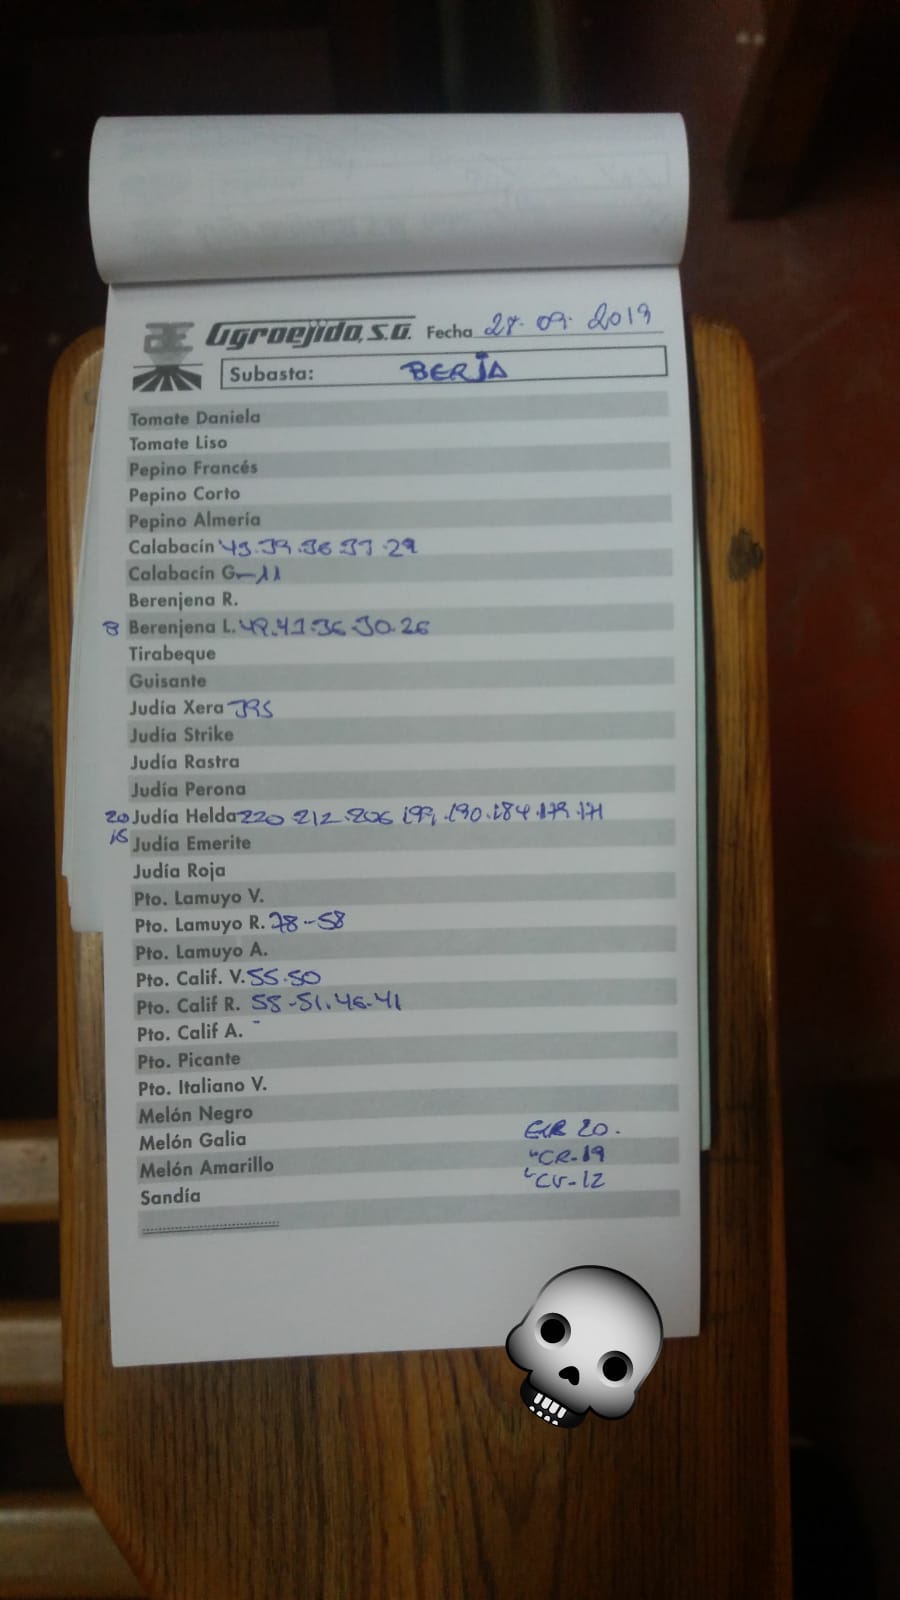 Agroejido, S.A. Fecha 27. 09. 2019
Subasta: BERJA
Tomate Daniela
Tomate Liso
Pepino Francés
Pepino Corto
Pepino Almería
Calabacín 43.39.36.33.29
Calabacín G-11
Berenjena R.
8 Berenjena L. 49.43.36.30.26
Tirabeque
Guisante
Judía Xera 395
Judía Strike
Judía Rastra
Judía Perona
20 Judía Helda 220.212.206.199.190.184.179.171
15 Judía Emerite
Judía Roja
Pto. Lamuyo V.
Pto. Lamuyo R. 78-58
Pto. Lamuyo A.
Pto. Calif. V. 55.50
Pto. Calif R. 55-51.46.41
Pto. Calif A. -
Pto. Picante
Pto. Italiano V.
Melón Negro
Melón Galia 20.
Melón Amarillo "CR-19
Sandía "CV-12